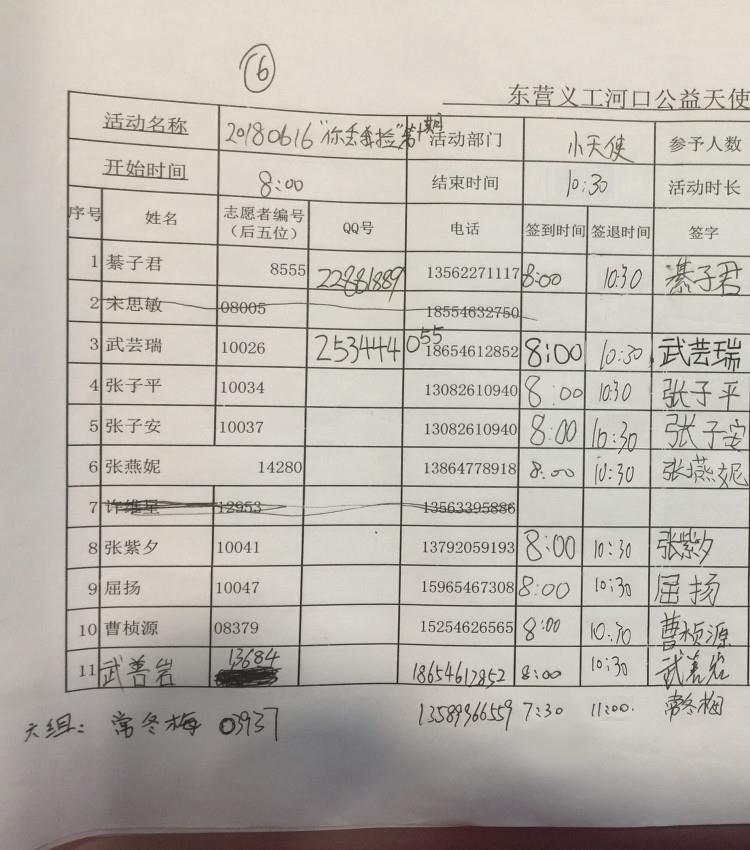 ⑥
东营义工河口公益天使
活动名称 20180616"你丢我捡"第十期 活动部门 小天使 参予人数
开始时间 8:00 结束时间 10:30 活动时长
序号 姓名 志愿者编号（后五位） QQ号 电话 签到时间 签退时间 签字
1 綦子君 8555 22881889 13562271117 8:00 10:30 綦子君
2 宋思敏 08005 18554632750
3 武芸瑞 10026 253444055 18654612852 8:00 10:30 武芸瑞
4 张子平 10034 13082610940 8:00 10:30 张子平
5 张子安 10037 13082610940 8:00 10:30 张子安
6 张燕妮 14280 13864778918 8:00 10:30 张燕妮
7 许维星 12953 13563395886
8 张紫夕 10041 13792059193 8:00 10:30 张紫夕
9 屈扬 10047 15965467308 8:00 10:30 屈扬
10 曹桢源 08379 15254626565 8:00 10:30 曹桢源
11 武善岩 13684 18654612852 8:00 10:30 武善岩
组: 常冬梅 03937 13589966559 7:30 11:00. 常冬梅